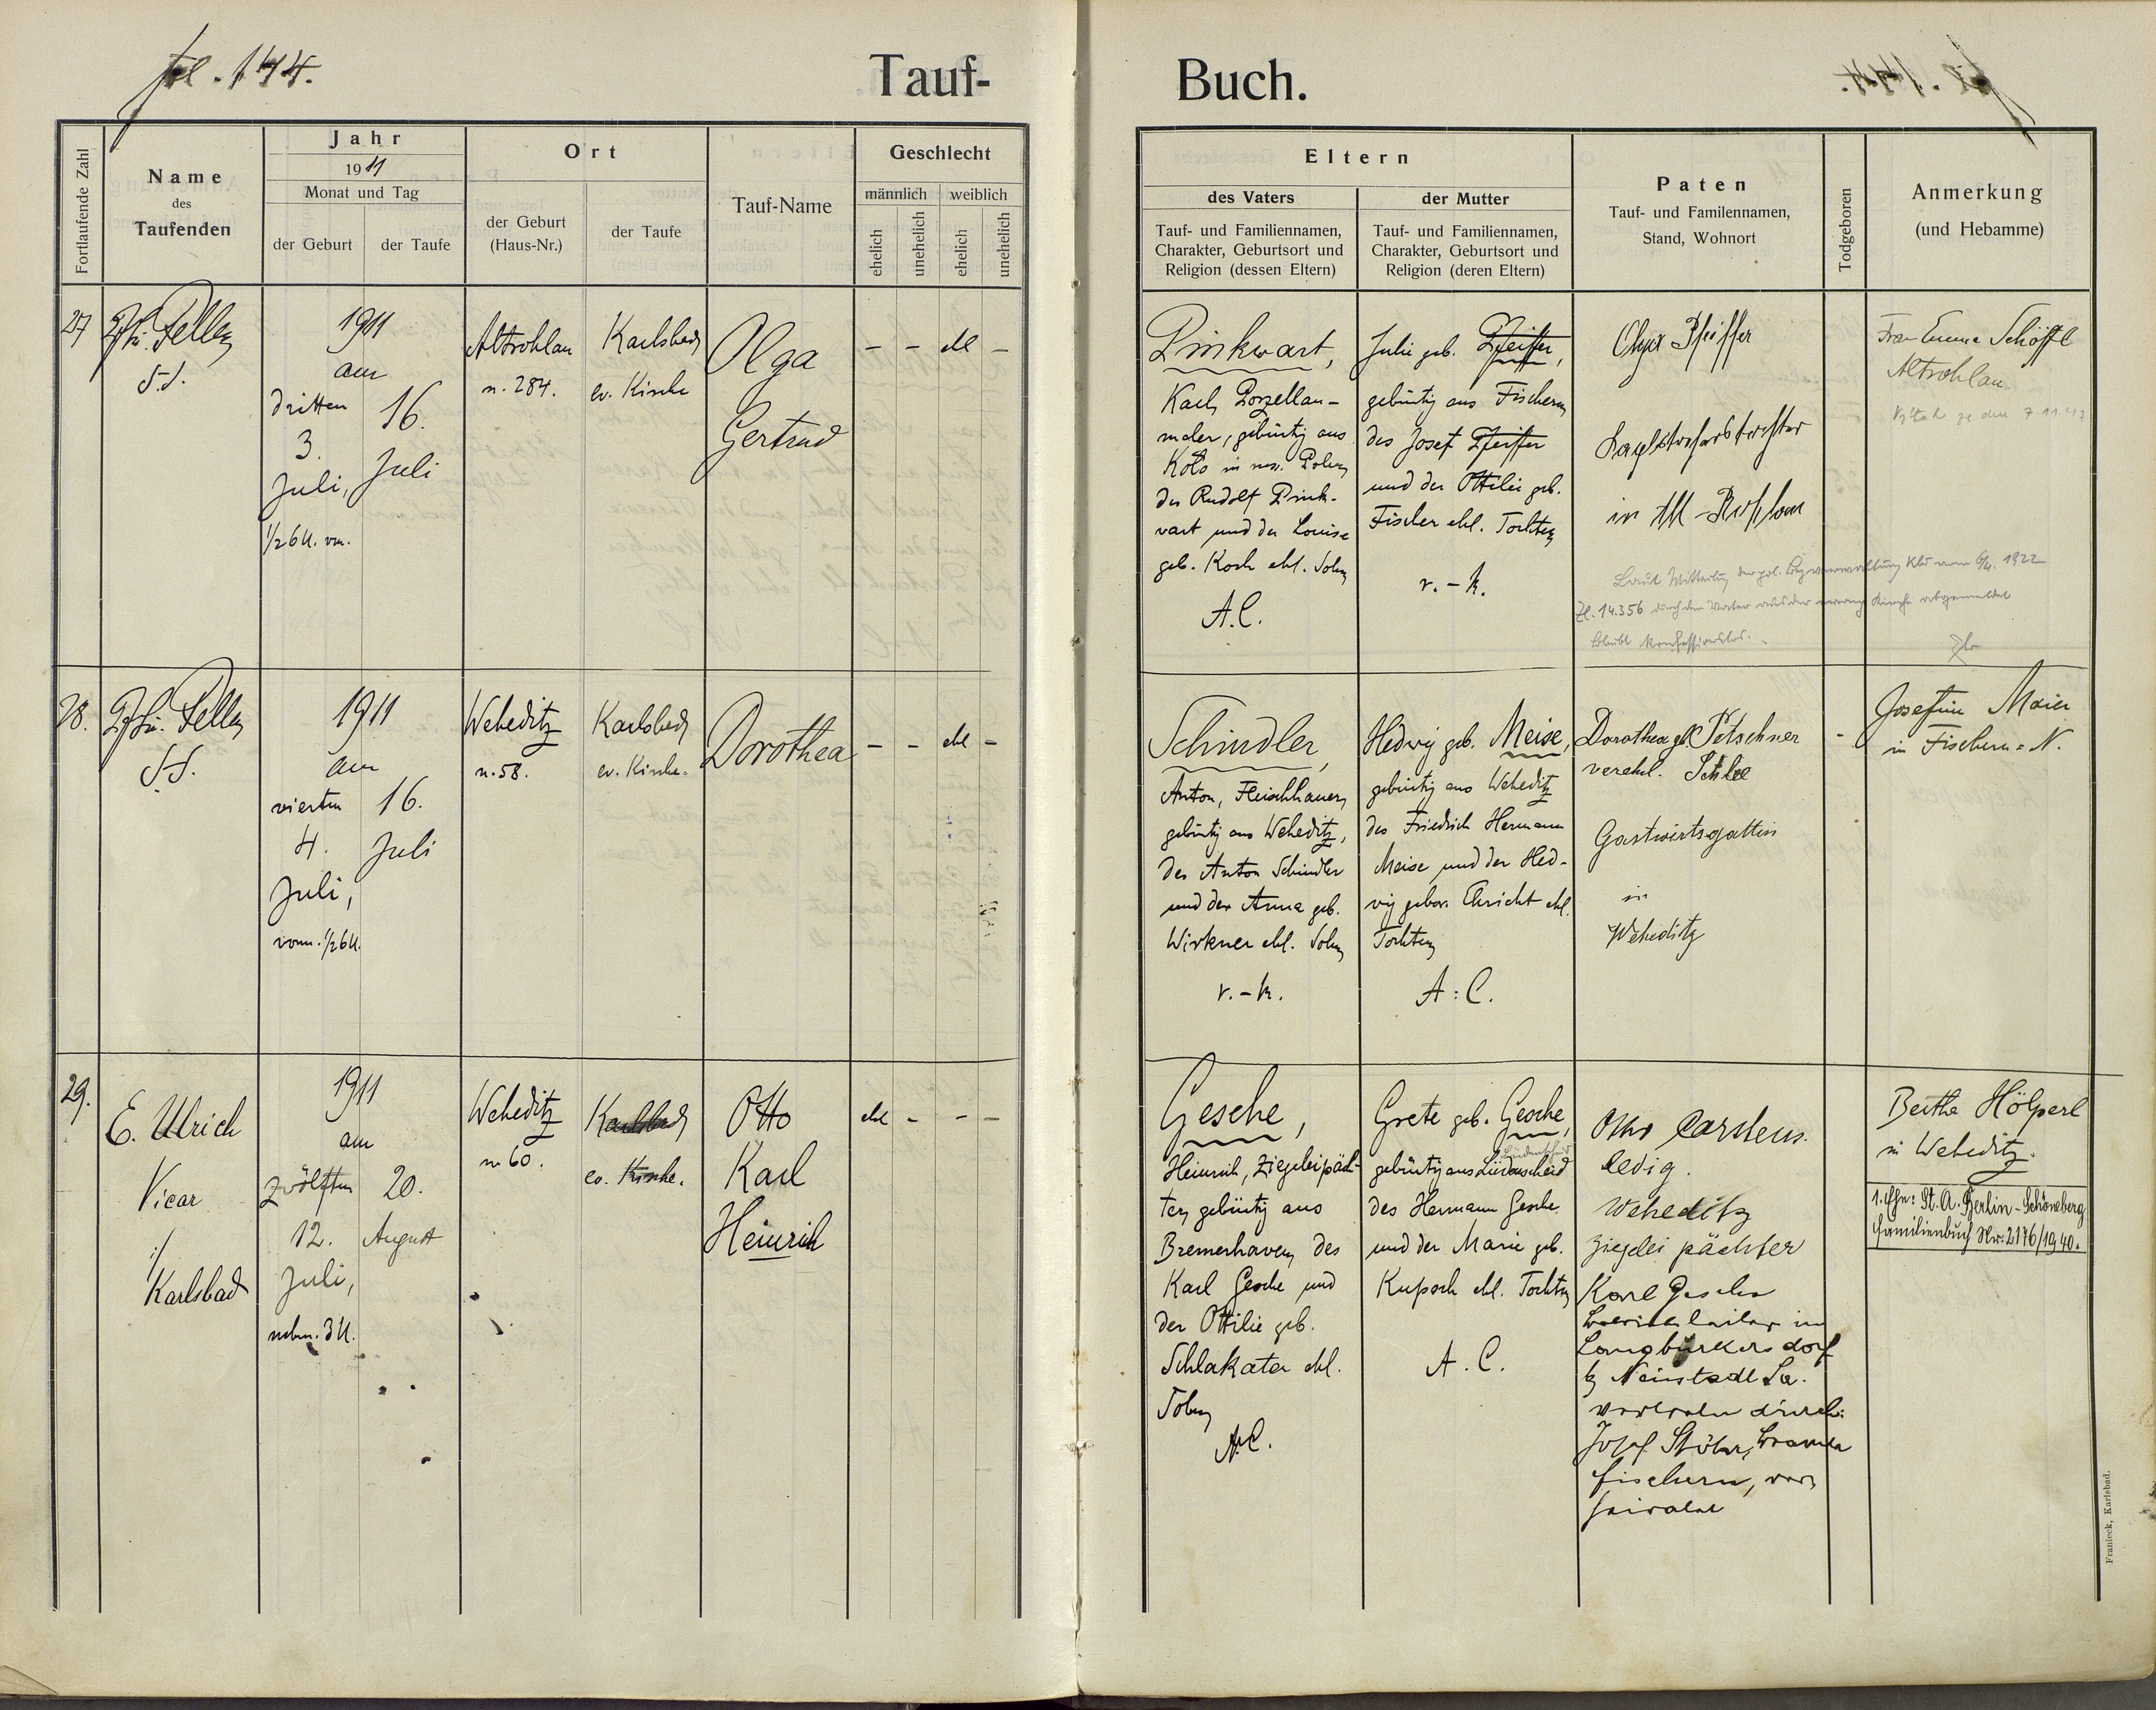 fol. 144.
Tauf-
Buch.
Fortlaufende Zahl
Name
des
Taufenden
Jahr
1911
Monat und Tag
der Geburt
der Taufe
Ort
der Geburt
(Haus-Nr.)
der Taufe
Tauf-Name
Geschlecht
männlich
weiblich
ehelich
unehelich
ehelich
unehelich
Eltern
des Vaters
Tauf- und Familiennamen,
Charakter, Geburtsort und
Religion (dessen Eltern)
der Mutter
Tauf- und Familiennamen,
Charakter, Geburtsort und
Religion (deren Eltern)
Paten
Tauf- und Familennamen,
Stand, Wohnort
Todgeboren
Anmerkung
(und Hebamme)
27
1911
am
dritten
3.
Juli,
1/2 6 U. vm.
16.
Juli
Altrohlau
n. 284.
Karlsbad
ev. Kirche
Olga
Gertrud
- - ehl -
Pinkwart,
Karl, Porzellan-
maler, gebürtig aus
Kolo in russ. Polen,
des Rudolf Pink-
wart und der Louise
geb. Koch ehl. Sohn
A. C.
Julie geb. Pfeiffer,
gebürtig aus Fischern,
des Josef Pfeiffer
und der Ottilie geb.
Fischer ehl. Tochter
r. - k.
Olga Pfeiffer
in Alt-Rohlau
Laut Mitteilung der pol. Bez. verwaltung Kbd vom 6/4. 1922
Zl. 14.356 durch den Vater aus der evang. Kirche abgemeldet
bleibt konfessionslos.
Frau Emma Schöffl
Altrohlau
28.
1911
am
vierten
4.
Juli,
vorm. 1/2 6 U.
16.
Juli
Weheditz
n. 58.
Karlsbad
ev. Kirche.
Dorothea
- - ehl -
Schindler,
Anton, Fleischhauer,
gebürtig aus Weheditz,
des Anton Schindler
und der Anna geb.
Wirkner ehl. Sohn
r. - k.
Hedwig geb. Meise,
gebürtig aus Weheditz
des Friedrich Hermann
Meise und der Hed-
wig gebor. Ehricht ehl.
Tochter
A : C.
Dorothea geb. Petschner
verehel.
Gastwirtsgattin
in
Weheditz
-
Josefine Maier
in Fischern = N.
29.
E. Ulrich
Vicar
i/
Karlsbad
1911
am
zwölften
12.
Juli,
nchm. 3 U.
20.
August
Weheditz
n. 60.
Karlsbad
ev. Kirche.
Otto
Karl
Heinrich
ehl - - -
Gesche,
Heinrich, Ziegeleipäch-
ter, gebürtig aus
Bremerhaven, des
Karl Gesche und
der Ottilie geb.
Schlakater ehl.
Sohn
A. C.
Grete geb. Gesche,
Lüdenscheid
gebürtig aus Lüdenscheid
des Hermann Gesche
und der Marie geb.
Kupsch ehl. Tochter
A. C.
Otto Carstens.
ledig.
Weheditz
Ziegelei pächter
Karl Gesche
Betriebsleiter in
Langburkersdorf
b. Neustadt Sa.
vertreten durch:
Josef Stöhr, Beamter
Fischern, ver-
heiratet
Berthe Hölperl
in Weheditz.
1. Ehe: St. A. Berlin-Schöneberg
Familienbuch Nr. 2176/1940.
Franieck, Karlsbad.